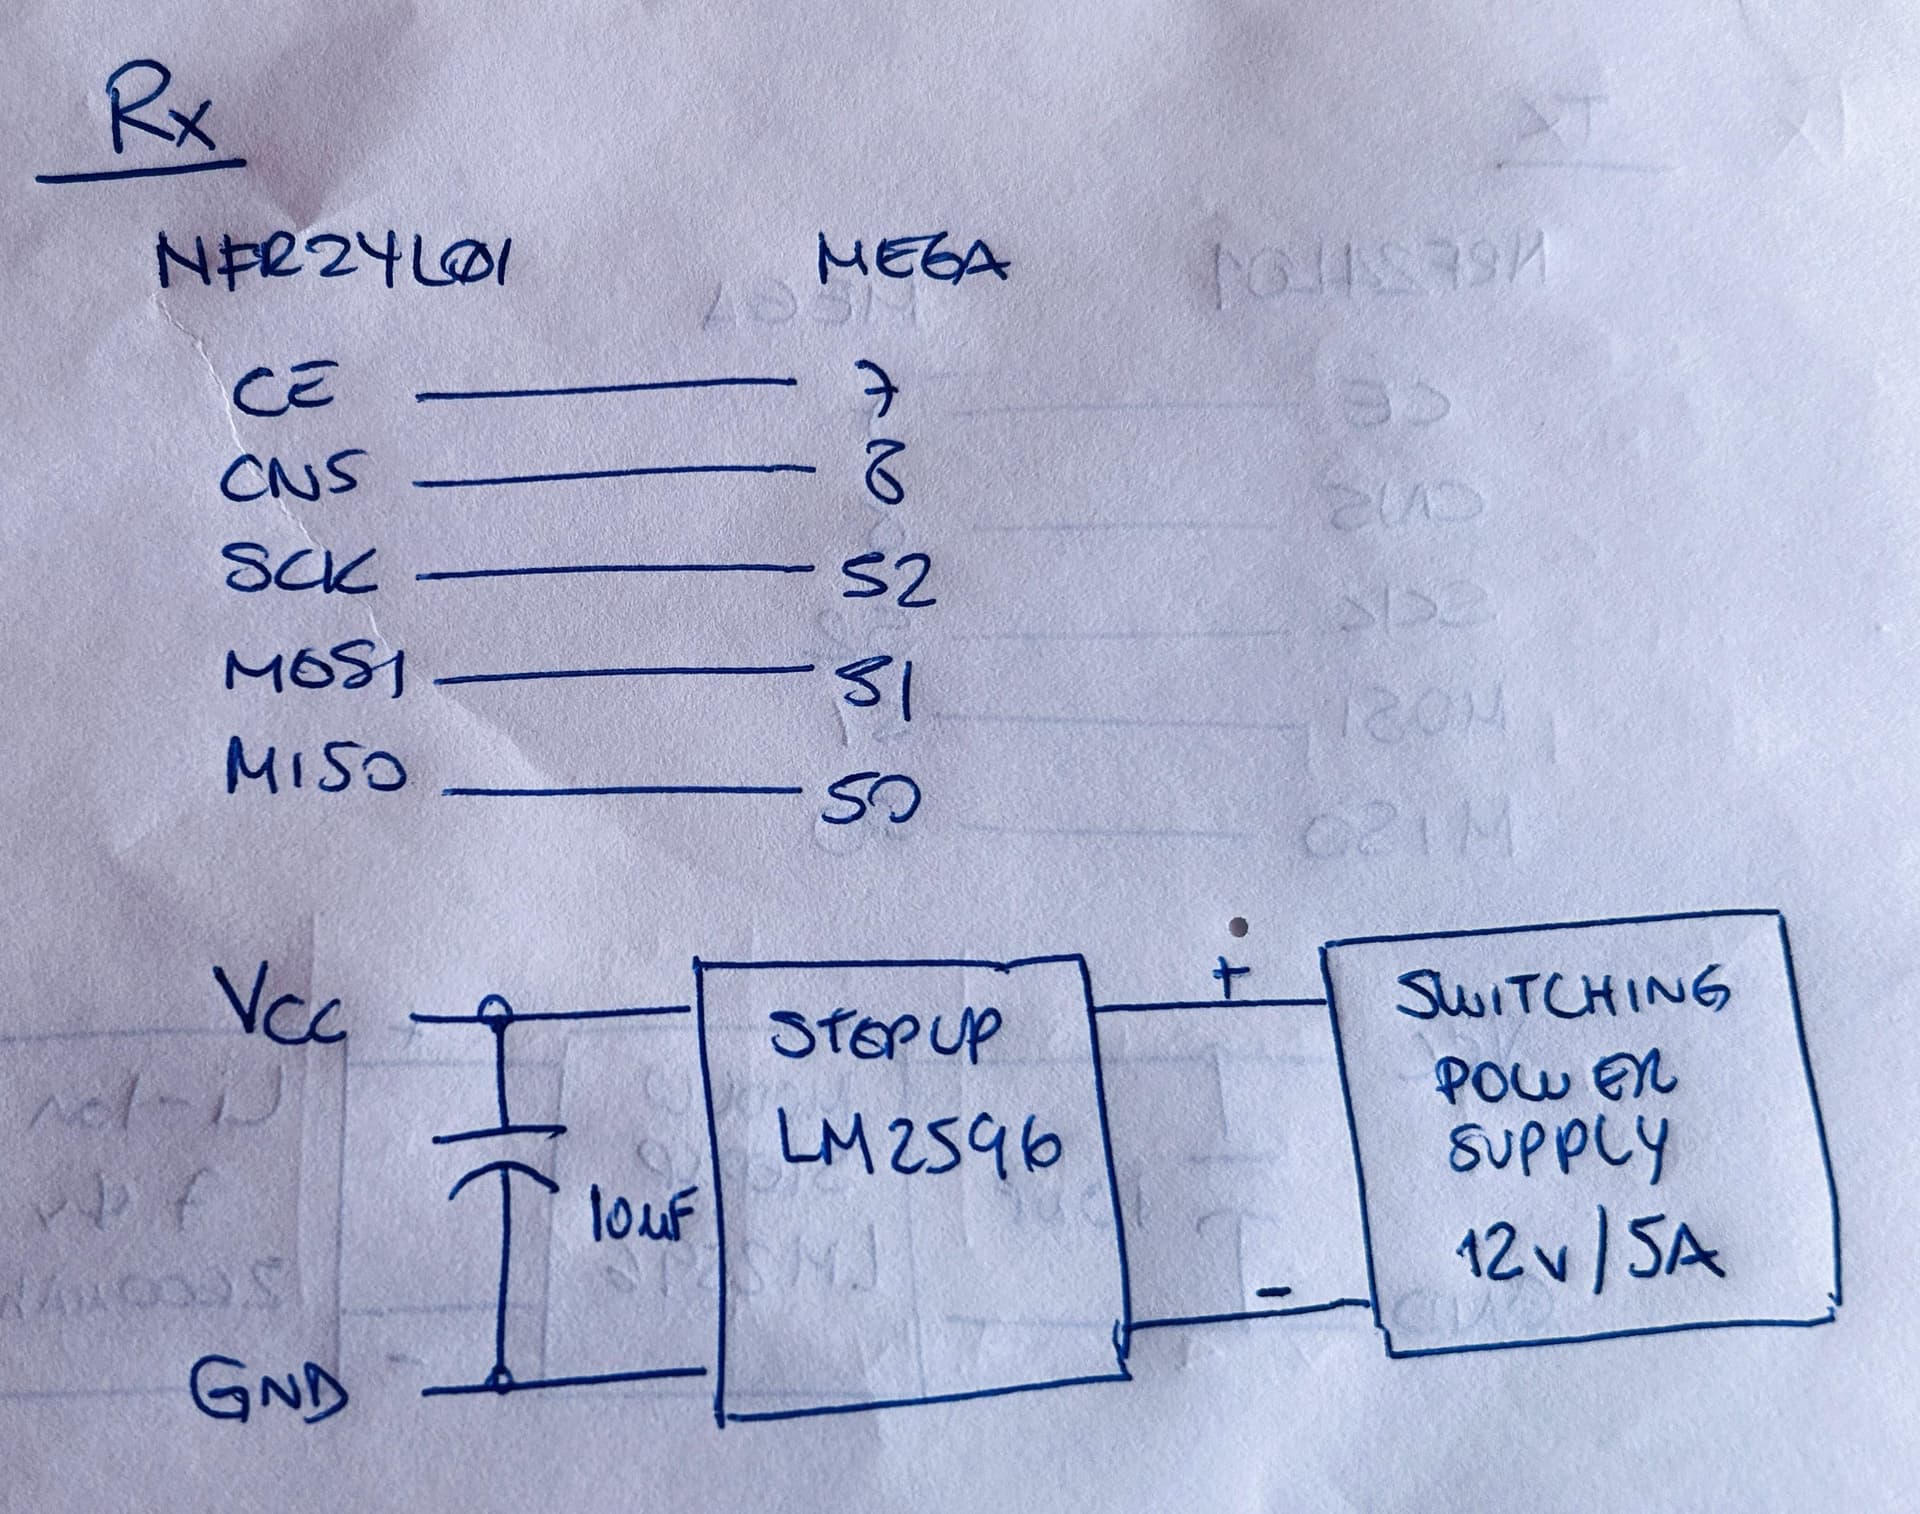 Rx
NFR24L01 MEGA
CE 7
CNS 8
SCK 52
MOSI 51
MISO 50
VCC + SWITCHING
STEPUP POWER
LM2596 SUPPLY
10uF 12v/5A
-
GND